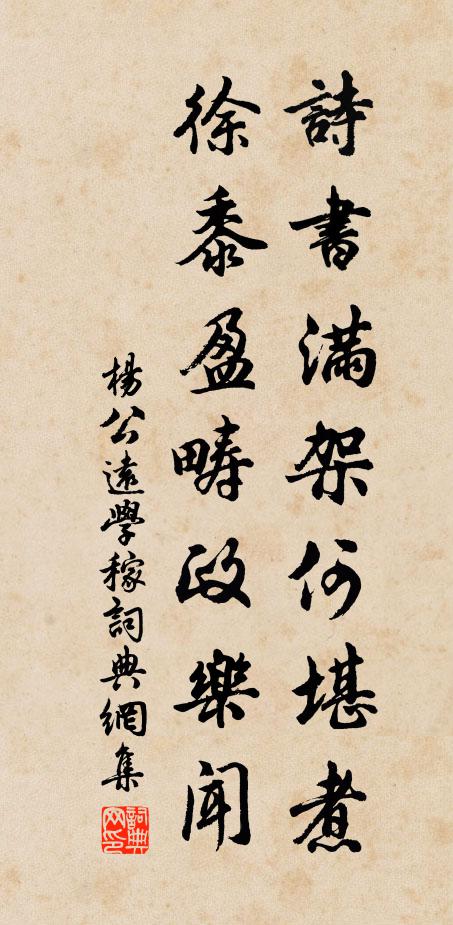 詩書滿架何堪煮
徐黍盈疇政樂聞
楊公遠學稼詞典網集
詞典網印